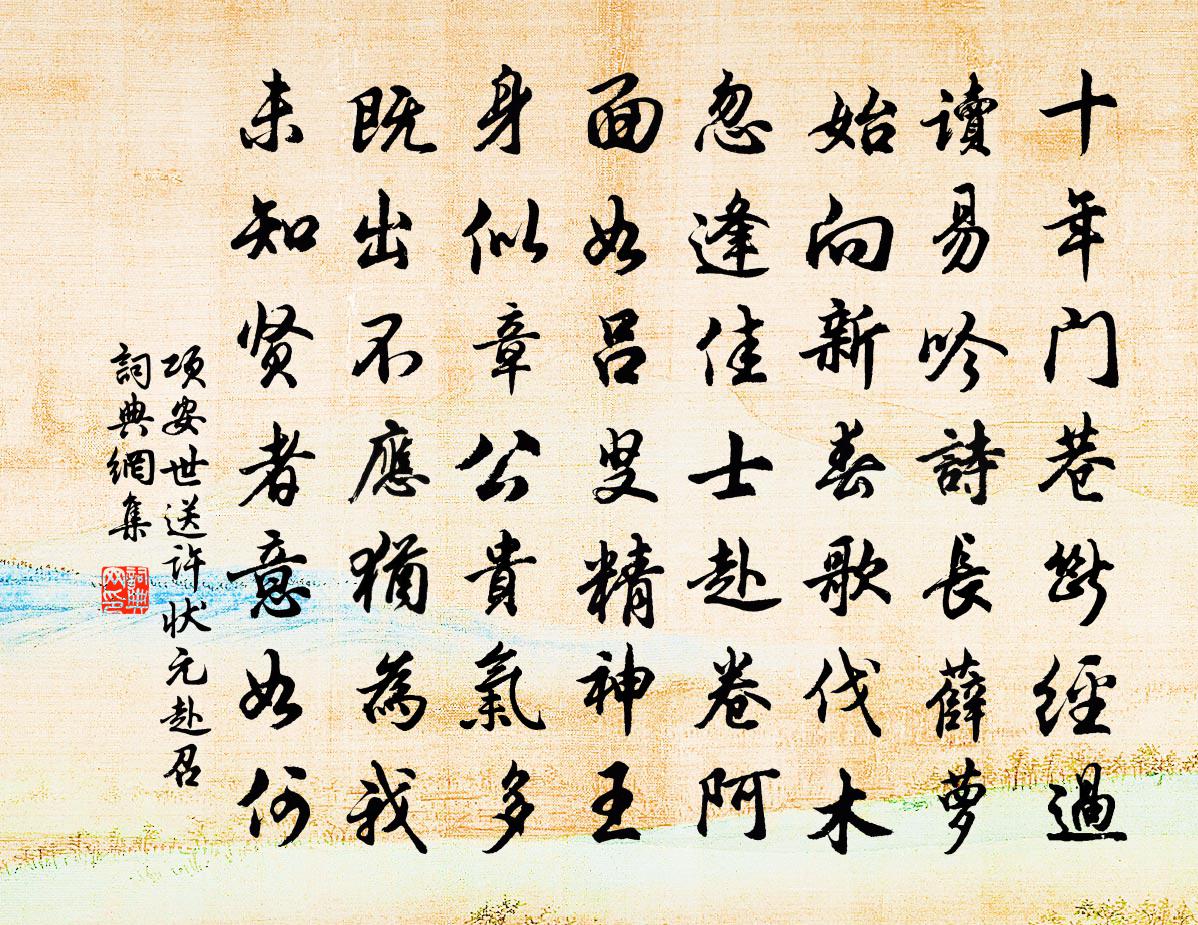 十年门巷斷經過
讀易吟詩長薜萝
始向新春歌伐木
忽逢佳士赴卷阿
面如吕叟精神王
身似章公貴氣多
既出不應猶為我
未知贤者意如何
项安世送许状元赴召
詞典網集